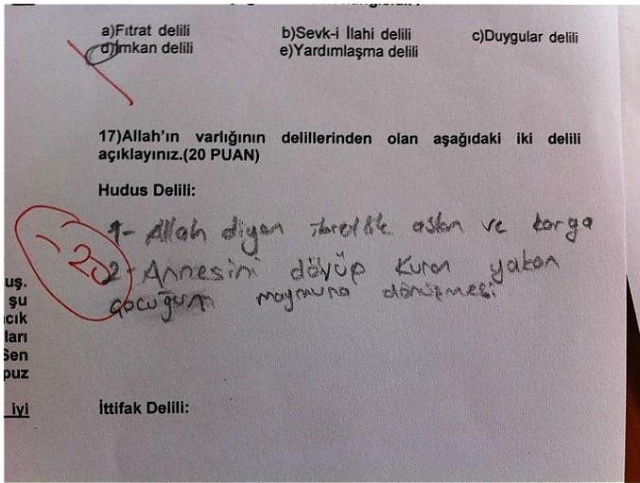 a)Fıtrat delili b)Sevk-i İlahi delili c)Duygular delili
d)İmkan delili e)Yardımlaşma delili
17)Allah'ın varlığının delillerinden olan aşağıdaki iki delili
açıklayınız.(20 PUAN)
Hudus Delili:
1- Allah diyen aslan ve karga
2- Annesini dövüp Kuran yakan
çocuğun maymuna dönüşmesi
-20
uş.
şu
cık
ları
Sen
puz
iyi
İttifak Delili: